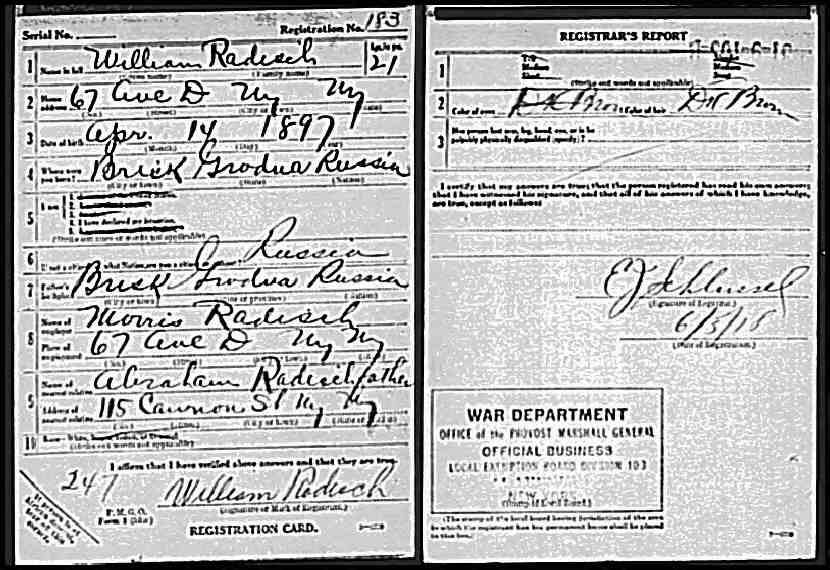 Serial No. Registration No. 183
1 Name in full William Radisch Age, in yrs. 21
(Given name) (Family name)
2 Home address 67 Ave D Ny Ny
(No.) (Street) (City or town) (State)
3 Date of birth Apr. 14 1897
(Month) (Day) (Year)
4 Where were you born? Brisk Grodna Russia
(City or town) (State) (Nation)
5 I am
I have declared my intention
(Strike out lines or words not applicable)
6 If not a citizen, of what Nation are you a citizen or subject? Russia
7 Father's birthplace Brisk Grodna Russia
(City or town) (State or province) (Nation)
8 Name of employer Morris Radisch
Place of employment 67 Ave D Ny Ny
(No.) (Street) (City or town) (State)
9 Name of nearest relative Abraham Radisch father
Address of nearest relative 115 Cannon St Ny Ny
(No.) (Street) (City or town) (State or Nation)
10 Race—White,
(Strike out words not applicable)
I affirm that I have verified above answers and that they are true.
247
William Radisch
P. M. G. O.
Form 1 (blue)
(Signature or Mark of Registrant.)
REGISTRATION CARD.
REGISTRAR'S REPORT
1 Tall
Medium
Short
(Strike out words not applicable)
2 Color of eyes DK Bron Color of hair DK Bron
3 Has person lost arm, leg, hand, eye, or is he
palpably physically disqualified (specify)?
I certify that my answers are true; that the person registered has read his own answers;
that I have witnessed his signature, and that all of his answers of which I have knowledge,
are true, except as follows:
(Signature of Registrar.)
6/5/18
(Date of Registration.)
WAR DEPARTMENT
OFFICE of the PROVOST MARSHALL GENERAL
OFFICIAL BUSINESS
LOCAL EXEMPTION BOARD DIVISION 103
NEW YORK
(Stamp of Local Board)
(The stamp of the local board having jurisdiction of the area
in which the registrant has his permanent home shall be placed
in this box.)